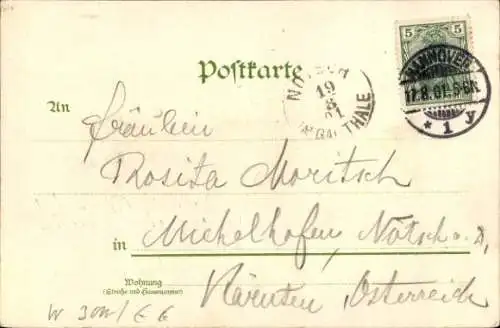 5
Postkarte
HANNOVER
17.8.01. 5-6N.
* 1 y
19
8
01
GAILTHALE
An
Fräulein
Rosita Moritsch
in Michelhofen, Nötsch a. d.
Wohnung
(Straße und Hausnummer)
Kärnten, Österreich